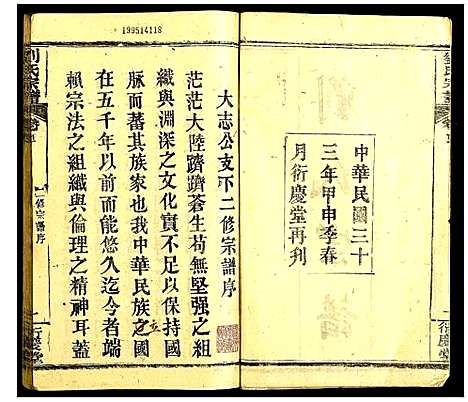 劉氏宗譜
卷首
中華民國三十
三年甲申季春
月衍慶堂再刋
衍慶堂
199514118
大志公支下二修宗譜序
茫茫大陸躋躋蒼生茍無堅强之組
織與淵深之文化實不足以保持國
脉而蕃其族家也我中華民族之國立
在五千年以前而能悠久迄今者端
賴宗法之組織與倫理之精神耳蓋
劉氏宗譜
卷首
二修宗譜序
一
衍慶堂